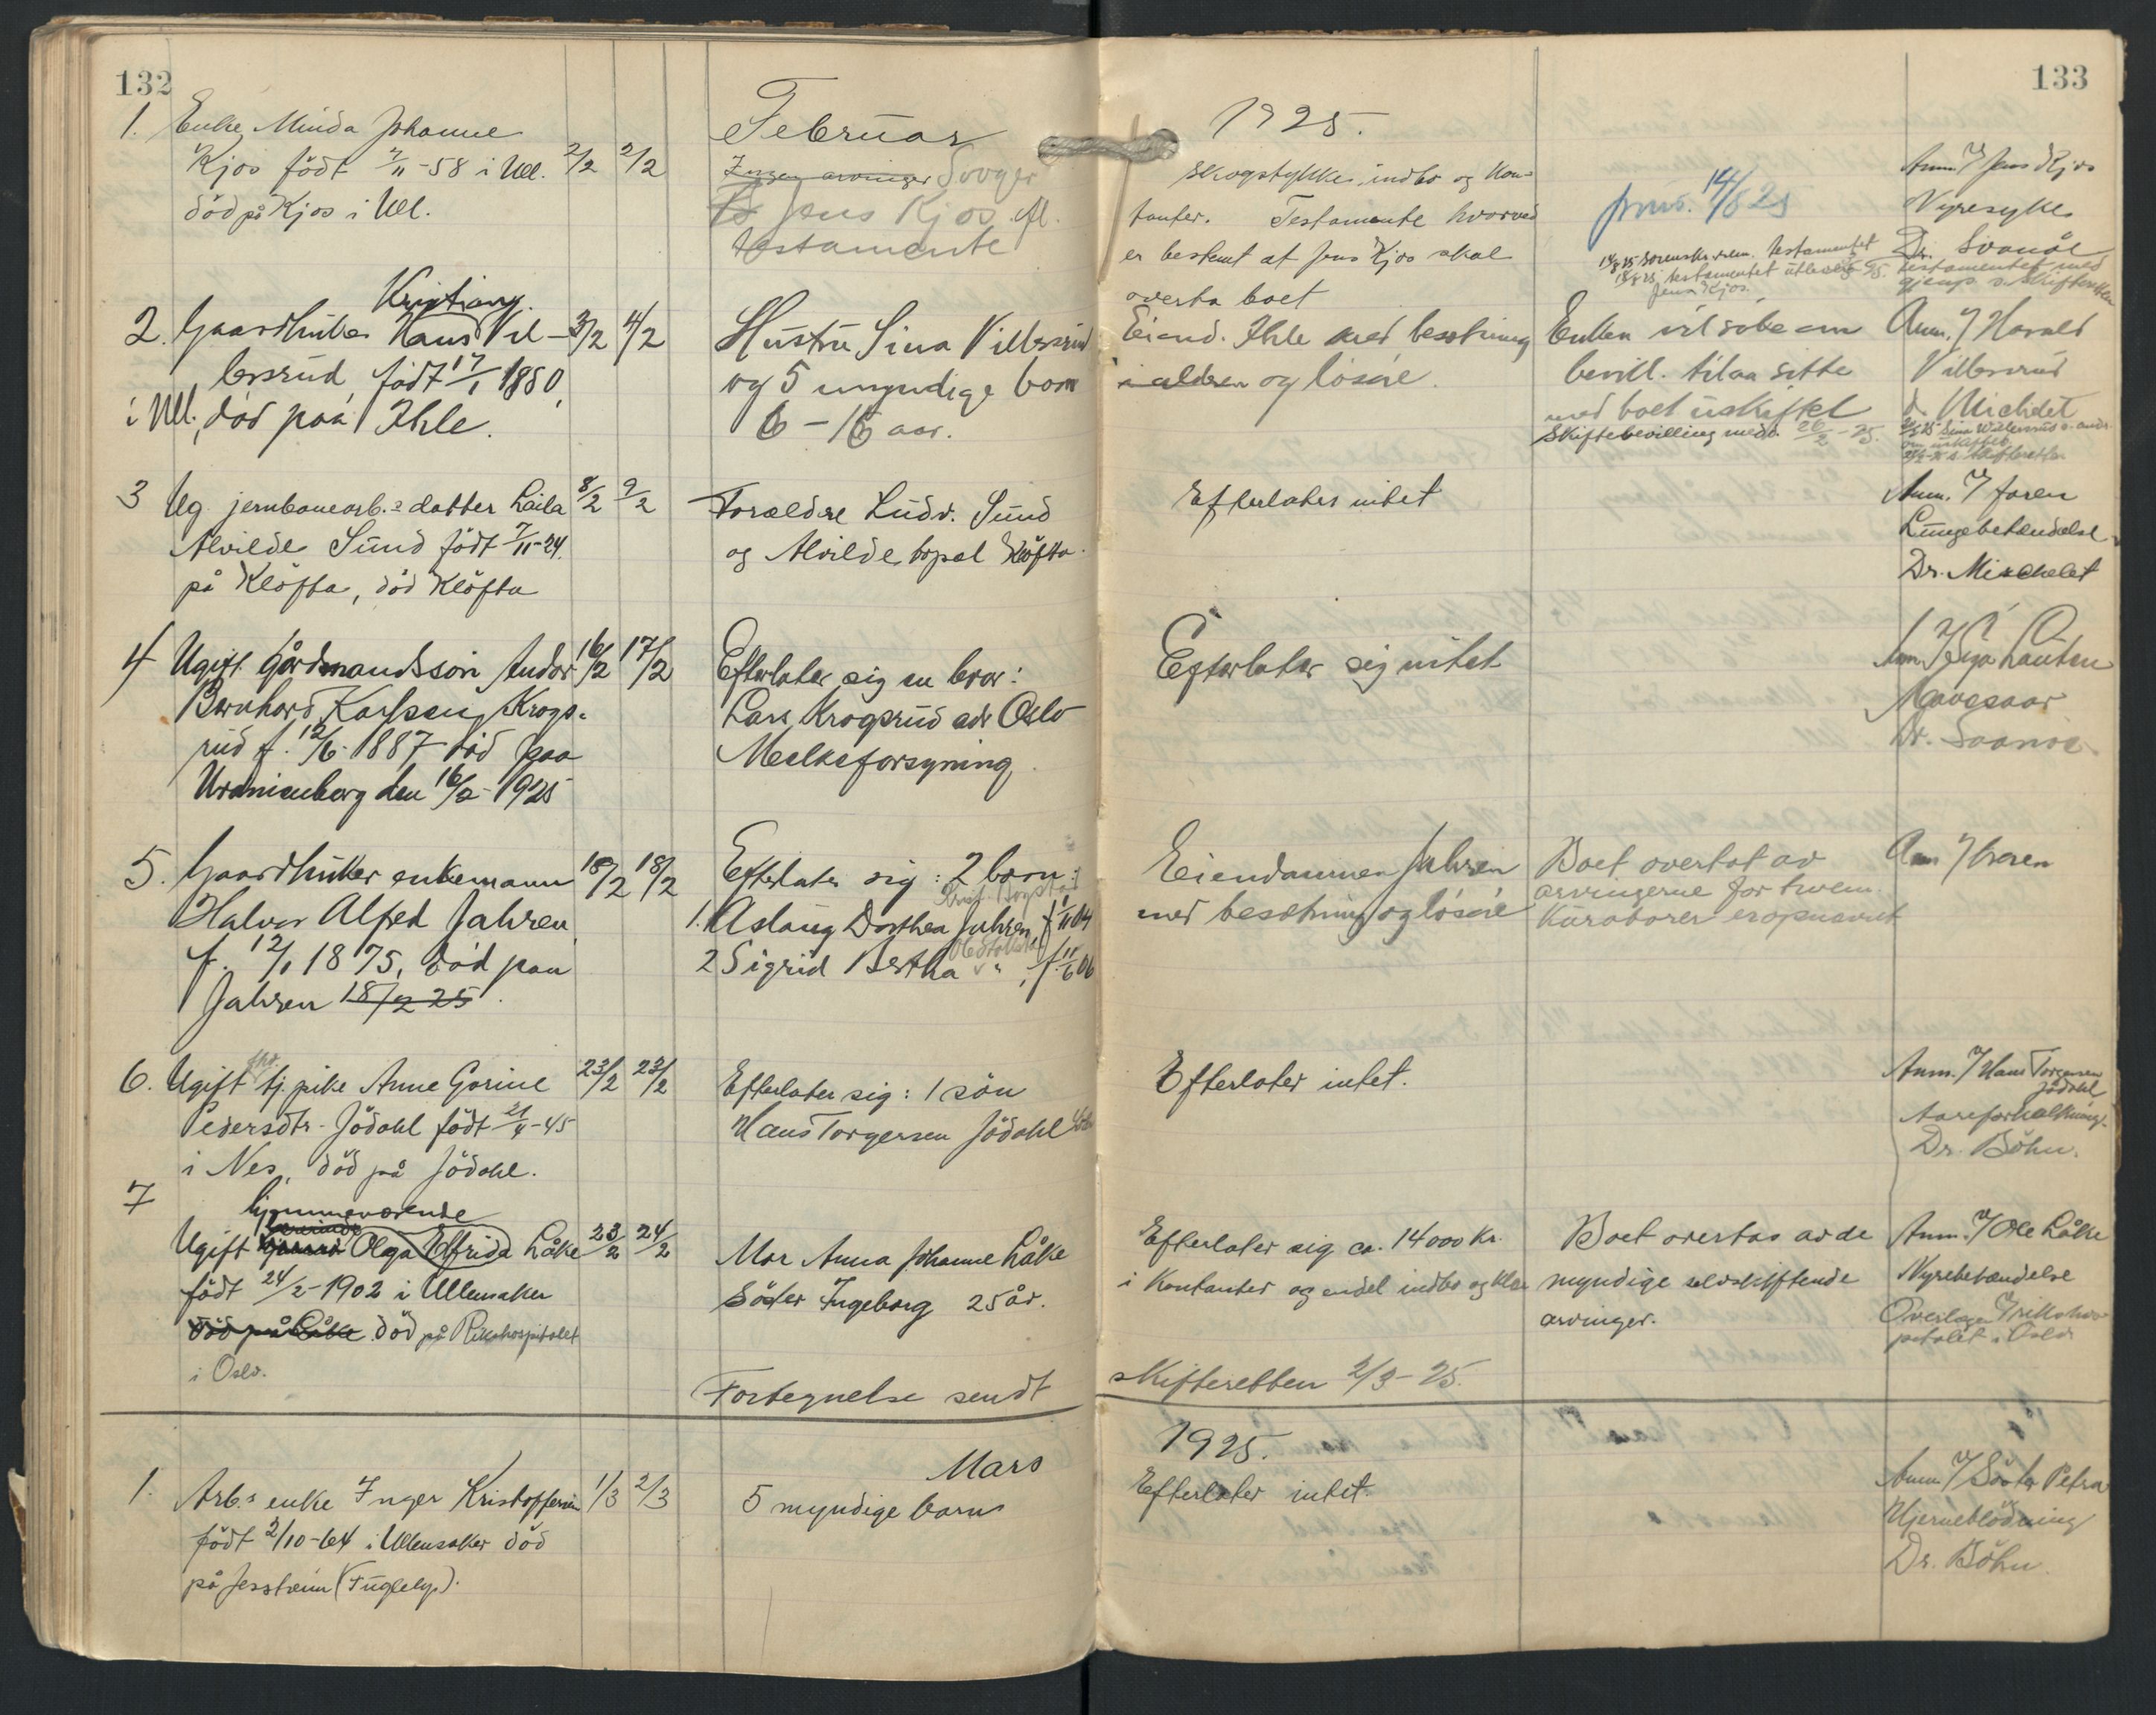 132
133
Februar
1925.
1. Enke Minda Johanne
Kjos födt 7/11-58 i Ull. 2/2 2/2
död på Kjos i Ull.
Ingen arvinger Svoger
Jens Kjos efl.
testamente
Skogstykke, indbo og kon-
tanter. Testamente hvorved
er bestemt at Jens Kjos skal
overta boet
prov. 14/8 25
testamentet
testamentet utlevert
Jens Kjos.
Anm. / Jens Kjos
Nyresyke
Dr. Svanöe
testamentet med
gjenp. s. skifteretten
Kristiansen
2. Gaardbruker Hans Vil- 3/2 4/2
lersrud, födt 17/1 1880,
i Ull., död paa Ihle.
Hustru Sina Villersrud
og 5 umyndige barn
6 - 16 aar.
Eiend. Ihle med besetning
og lösöre.
Enken vil söke om
bevill. til aa sitte
med boet uskiftet
Skiftebevilling medd. 26/2 - 25.
Anm. / Harald
Villersrud
d. Michelet
Sina Willersrud
om uskiftet
3 Ug. jernbanearb.s datter Laila 8/2 9/2
Alvilde Sund födt 7/11-24.
på Klöfta, död Klöfta
Forældre Ludv. Sund
og Alvilde bopæl Klöfta.
Efterlater intet
Anm. / faren
Lungebetændelse
Dr. Mischelet
4 Ugift. gårdmandssön Andor 16/2 17/2
Bernhard Karlsen Krogs-
rud f. 12/6-1887 död paa
Uranienborg den 16/2-1925
Efterlater sig en bror:
Lars Krogsrud adr. Oslo
Melkeforsyning.
Efterlater sig intet
Mavesaar
Dr. Svanöe
5. Gaardbruker enkemann 18/2 18/2
Halvor Alfred Jahren,
f. 12/1 1875, död paa
Jahren 18/2 25.
Efterlater sig: 2 barn:
1. Aslaug Dorthea Jahren, f. 1/11 04
2 Sigrid Bertha " , f. 11/6 06
Eiendommen Jahren
med besætning og lösöre
Boet overtat av
arvingerne for hvem
kurator er opnævnt
Anm / broren
6. Ugift tj.pike Anne Gorine 23/2 23/2
Pedersdtr. Jödahl födt 21/4-45
i Nes, död på Jödahl.
Efterlater sig: 1 sön
Hans Torgersen Jödahl
Efterlater intet.
Anm. / Hans Torgersen
Jödahl
Aareforkalkning.
Dr. Böhn.
7
hjemmeværende
Ugift Olga Elfrida Låke 23/2 24/2
födt 24/2-1902 i Ullensaker
död på Låke död på Rikshospitalet
i Oslo.
Mor Anna Johanne Låke
Söster Ingeborg 25 år.
Efterlater sig ca. 14000 kr.
i kontanter og endel indbo og klær
Boet overtas av de
myndige selvskiftende
arvinger.
Anm. / Ole Låke
Nyrebetændelse
Overlægen / rikshos-
pitalet i Oslo
Fortegnelse sendt skifteretten 2/3-25.
Mars
1925.
1. Arb.s enke Inger Kristoffersen 1/3 2/3
födt 2/10-64 i Ullensaker död
på Jessheim (Fuglely).
5 myndige barn
Efterlater intet
Anm. / Söster Petra
Hjerneblödning
Dr. Böhn.